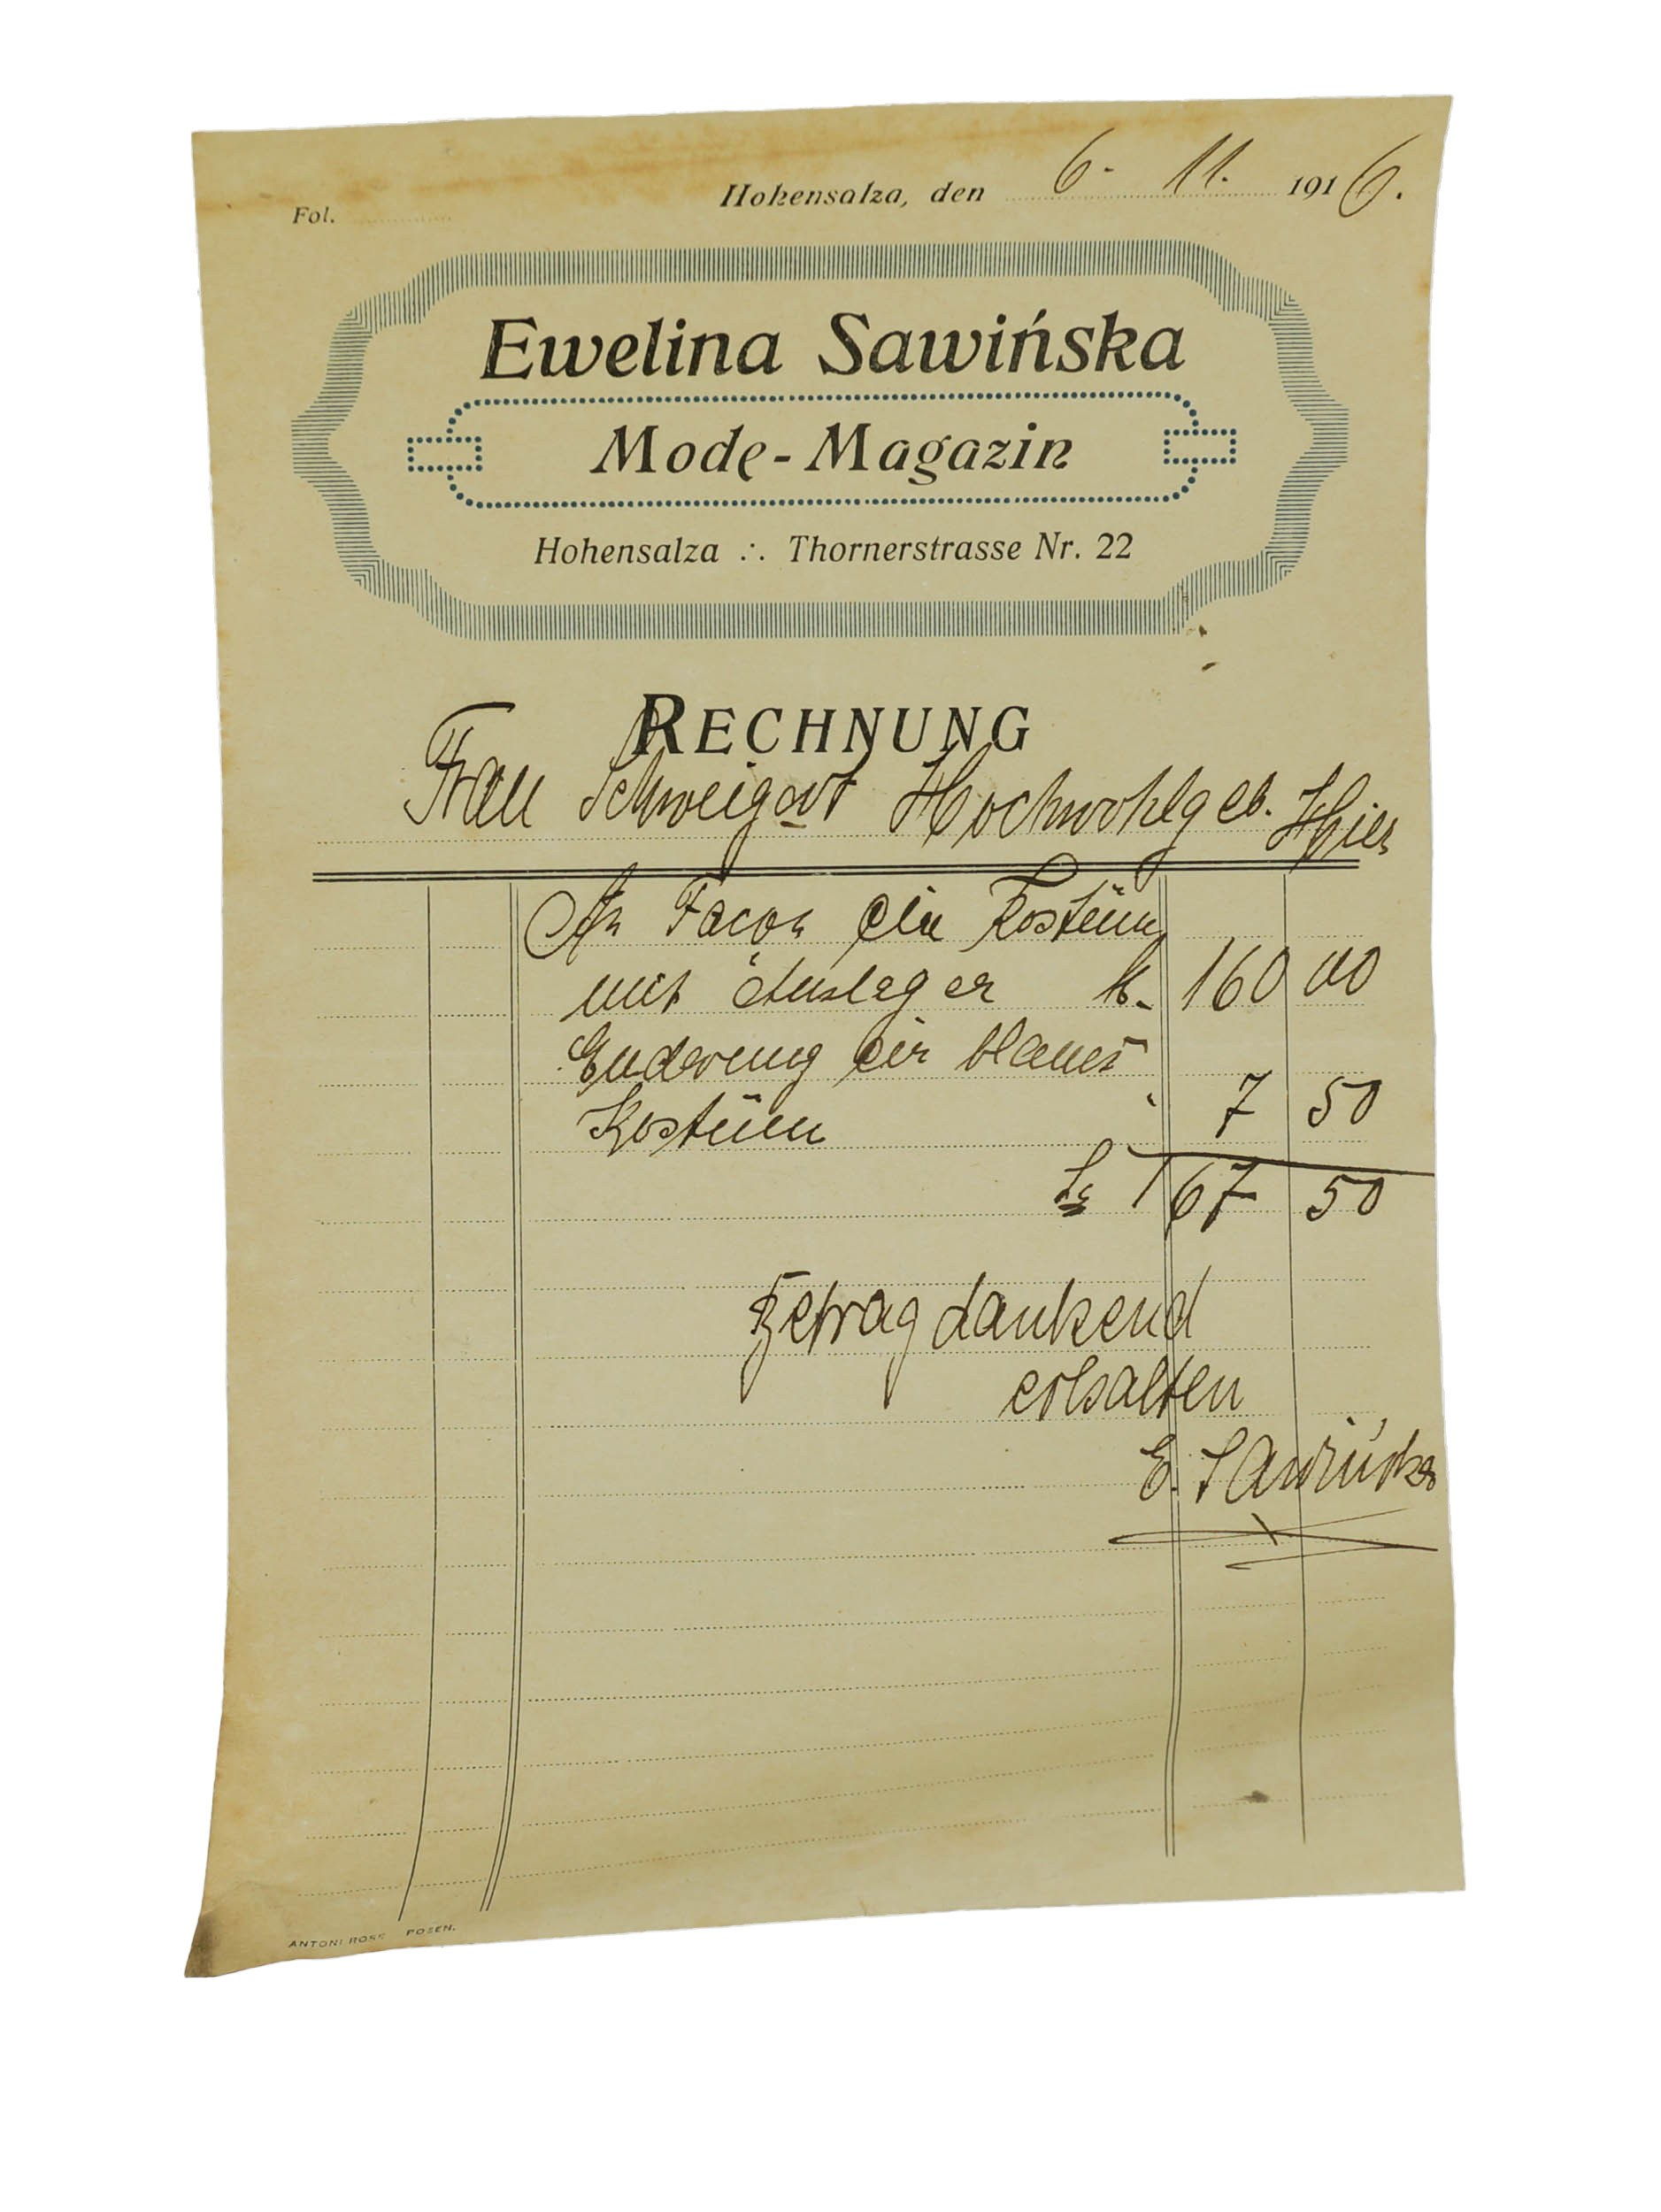 Fol.
Hohensalza, den 6. 11. 1916.
Ewelina Sawińska
Mode-Magazin
Hohensalza ∴ Thornerstrasse Nr. 22
RECHNUNG
Frau Schweigert Hochwohlgeb. Hier
An Facon ein Kostüm
mit Auslagen M. 160 00
Enderung ein blaues
Kostüm " 7 50
167 50
Betrag dankend
erhalten
E. Sawińska
ANTONI ROSE POSEN.